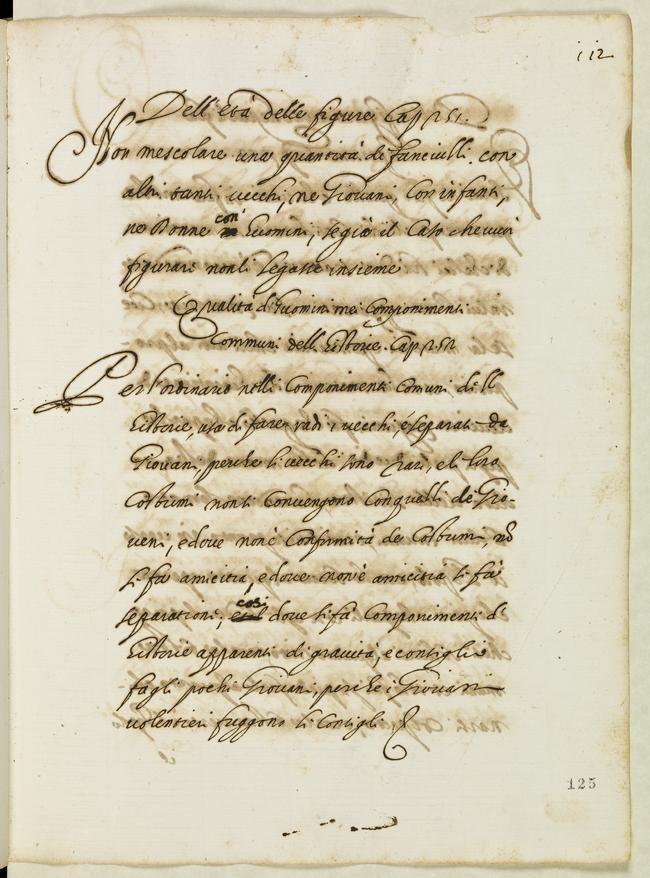 112
Dell'Età delle figure Cap
Non mescolare una quantità di fanciulli con
altri tanti vecchi, ne Giovani, con infanti,
ne Donne con Huomini, se già il Caso che vuoi
figurare non li legasse insieme
Qualità d'Huomini nei Componimenti
Communi dell'Historie. Cap
Per l'ordinario nelli Componimenti Comuni dell
Historie, usa di fare radi i vecchi, e separati da
Giovani, perche li vecchi sono rari, e li loro
Costumi non si convengono con quelli de Gio-
veni, e dove non è Conformità de Costumi, nō
si fa amicitia, e dove non è amicitia si fa
separatione; così dove si fa Componimenti d'
Historie apparenti di gravità, e consiglio
fagli pochi Giovani, perche i Giovani
volentieri fuggono li Consigli
125